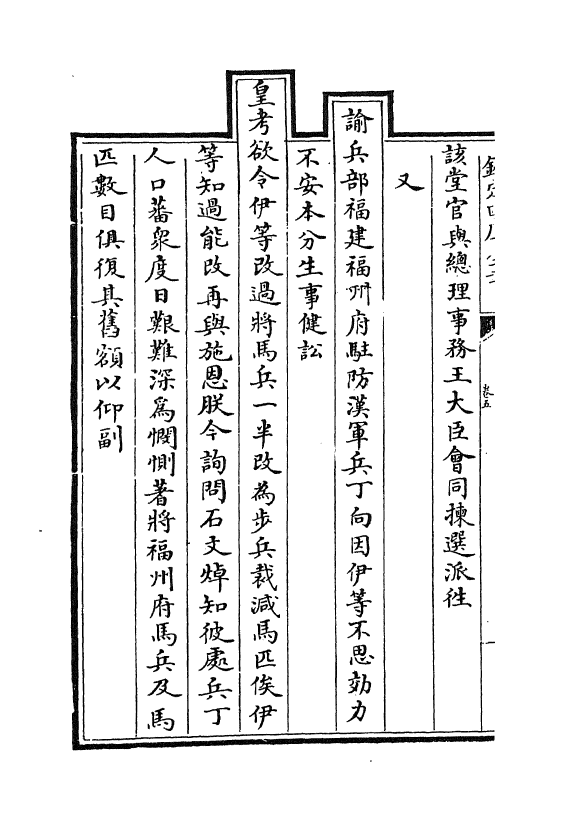 該堂官與總理事務王大臣會同揀選派往
又
諭兵部福建福州府駐防漢軍兵丁向因伊等不思効力
不安本分生事健訟
皇考欲令伊等改過將馬兵一半改為步兵裁減馬匹俟伊
等知過能改再與施恩朕今詢問石文焯知彼處兵丁
人口蕃衆度日艱難深爲憫惻著將福州府馬兵及馬
匹數目俱復其舊額以仰副
卷五